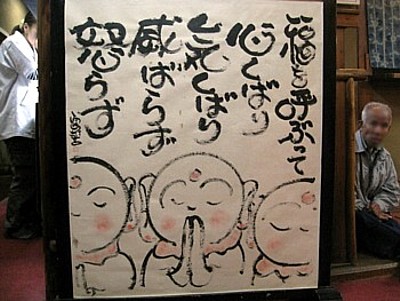 福を呼ぶって
心しばり
気しばり
威ばらず
怒らず